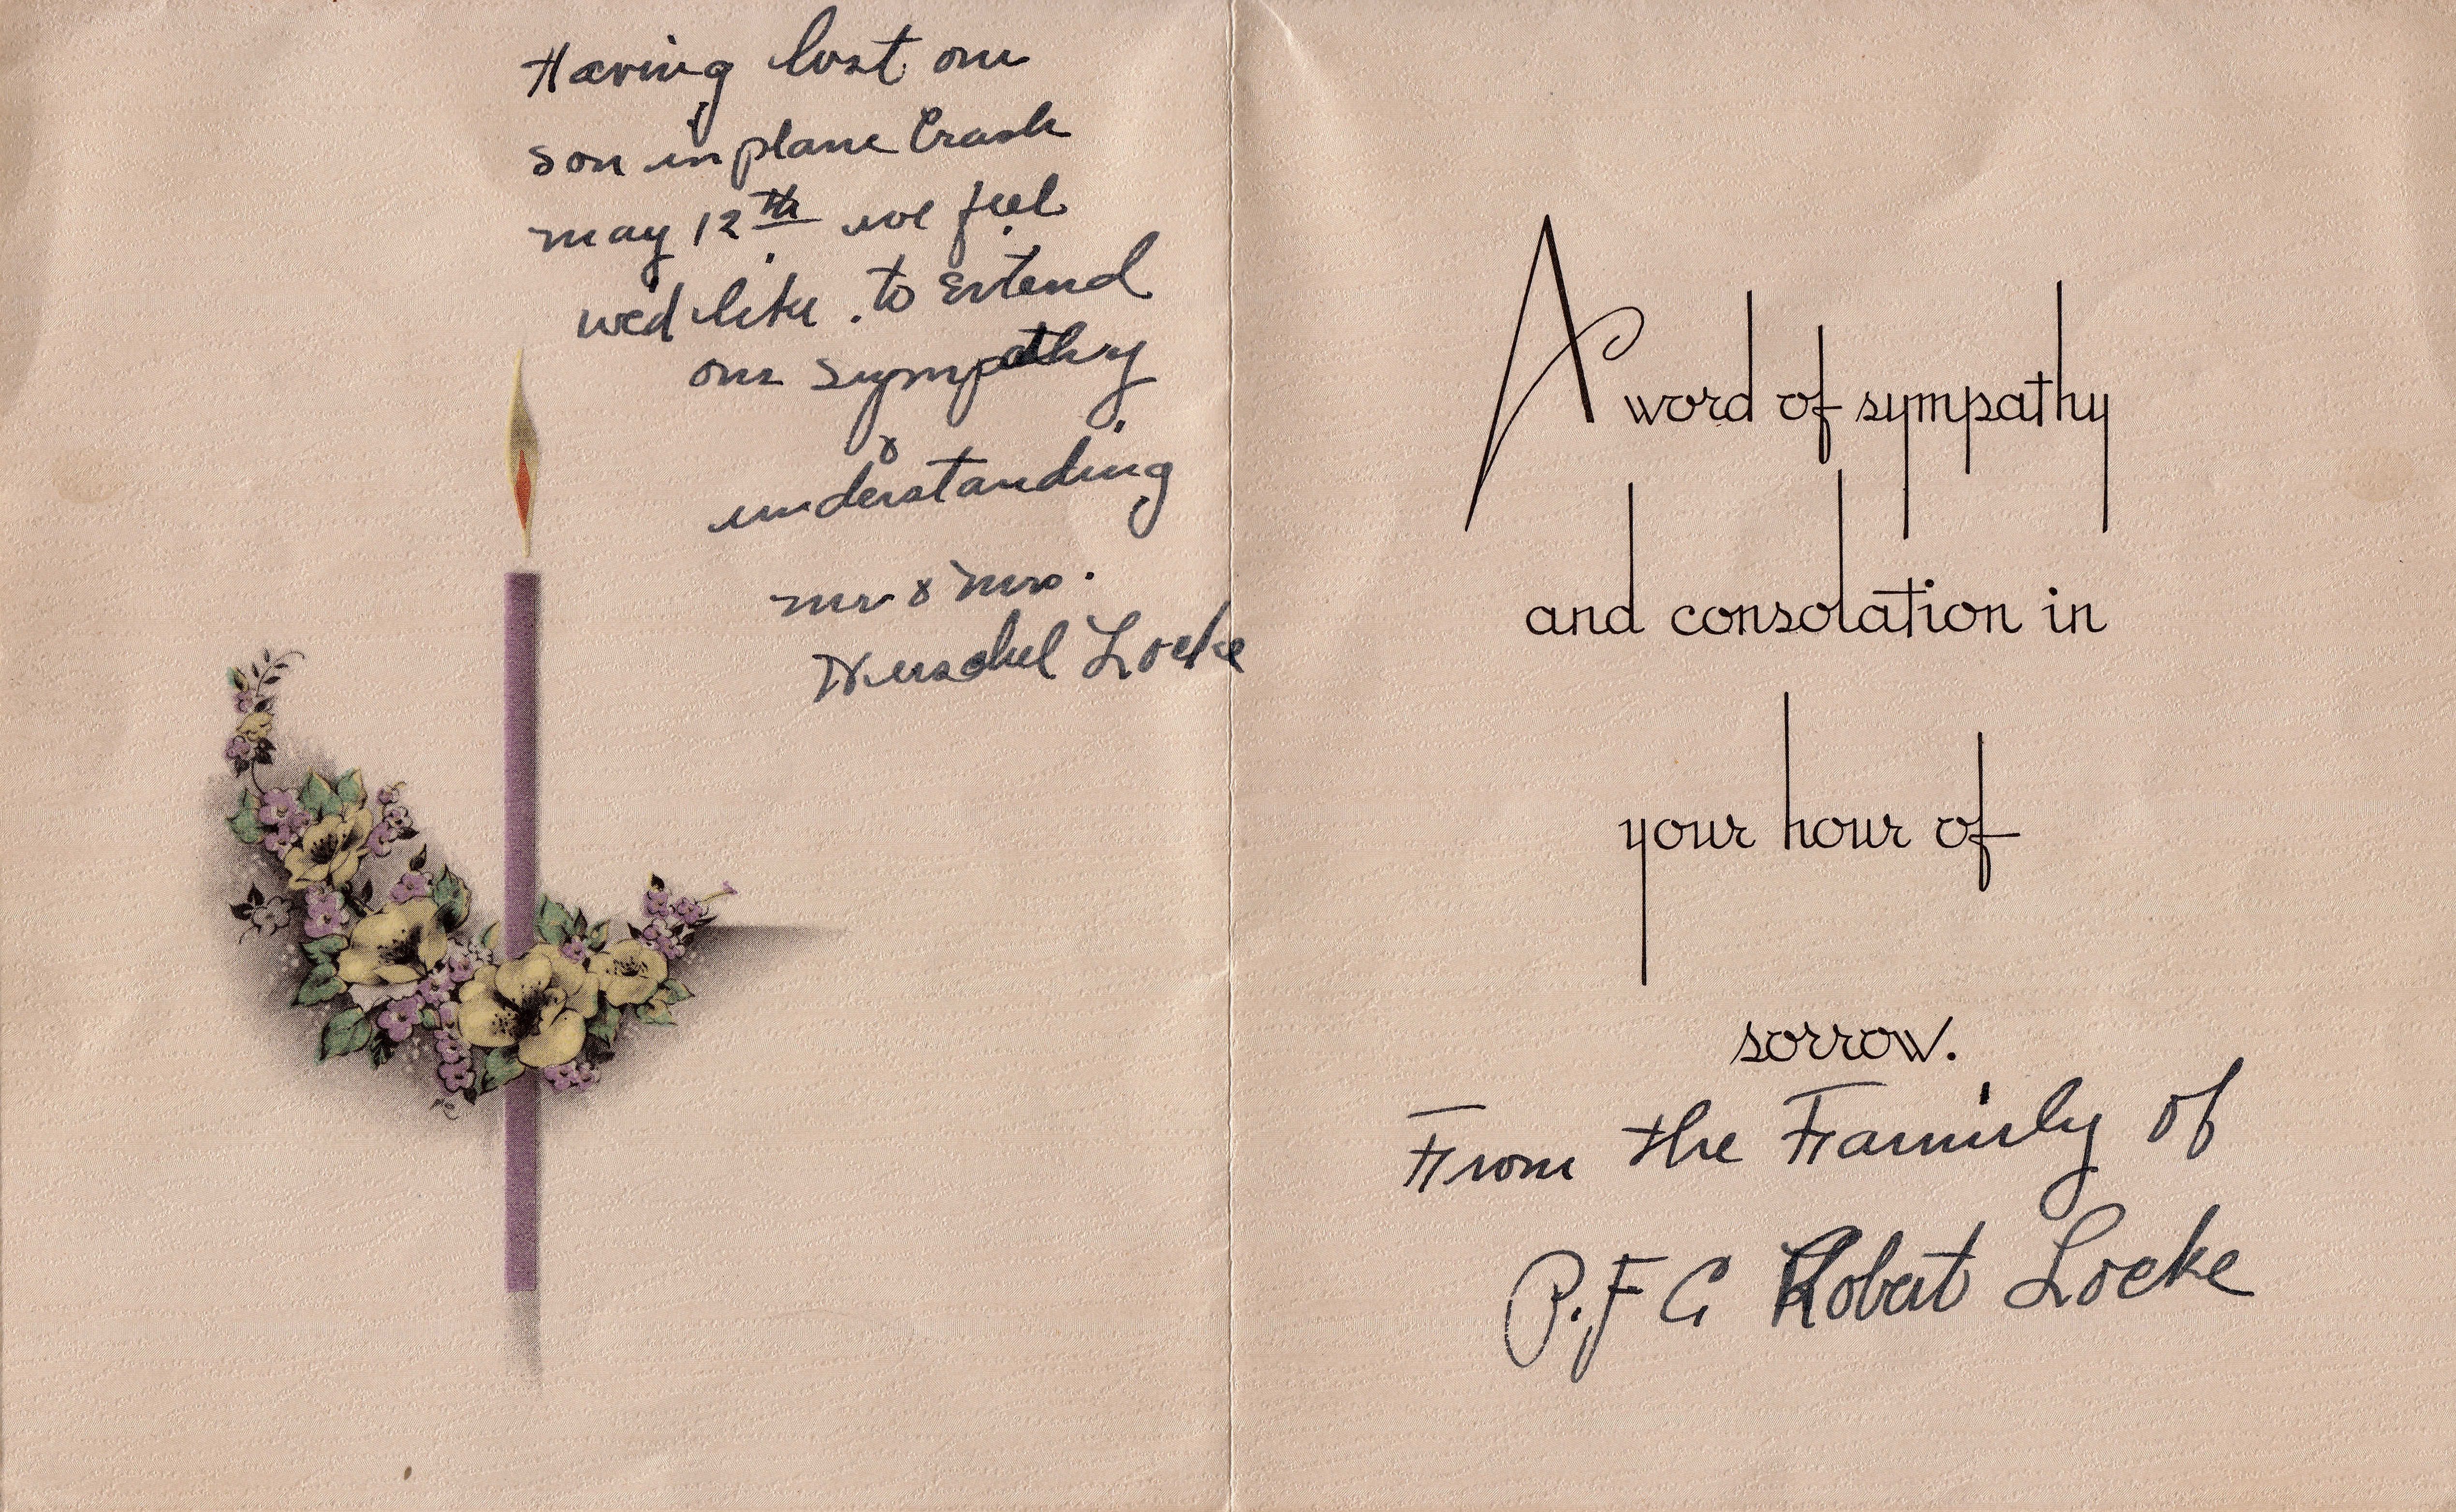 Having lost our
son in plane Crash
may 12th we feel
we'd like to Extend
our sympathy
&
understanding
mr & mrs.
Herschel Locke
A word of sympathy
and consolation in
your hour of
sorrow.
From the Family of
P.F C Robert Locke